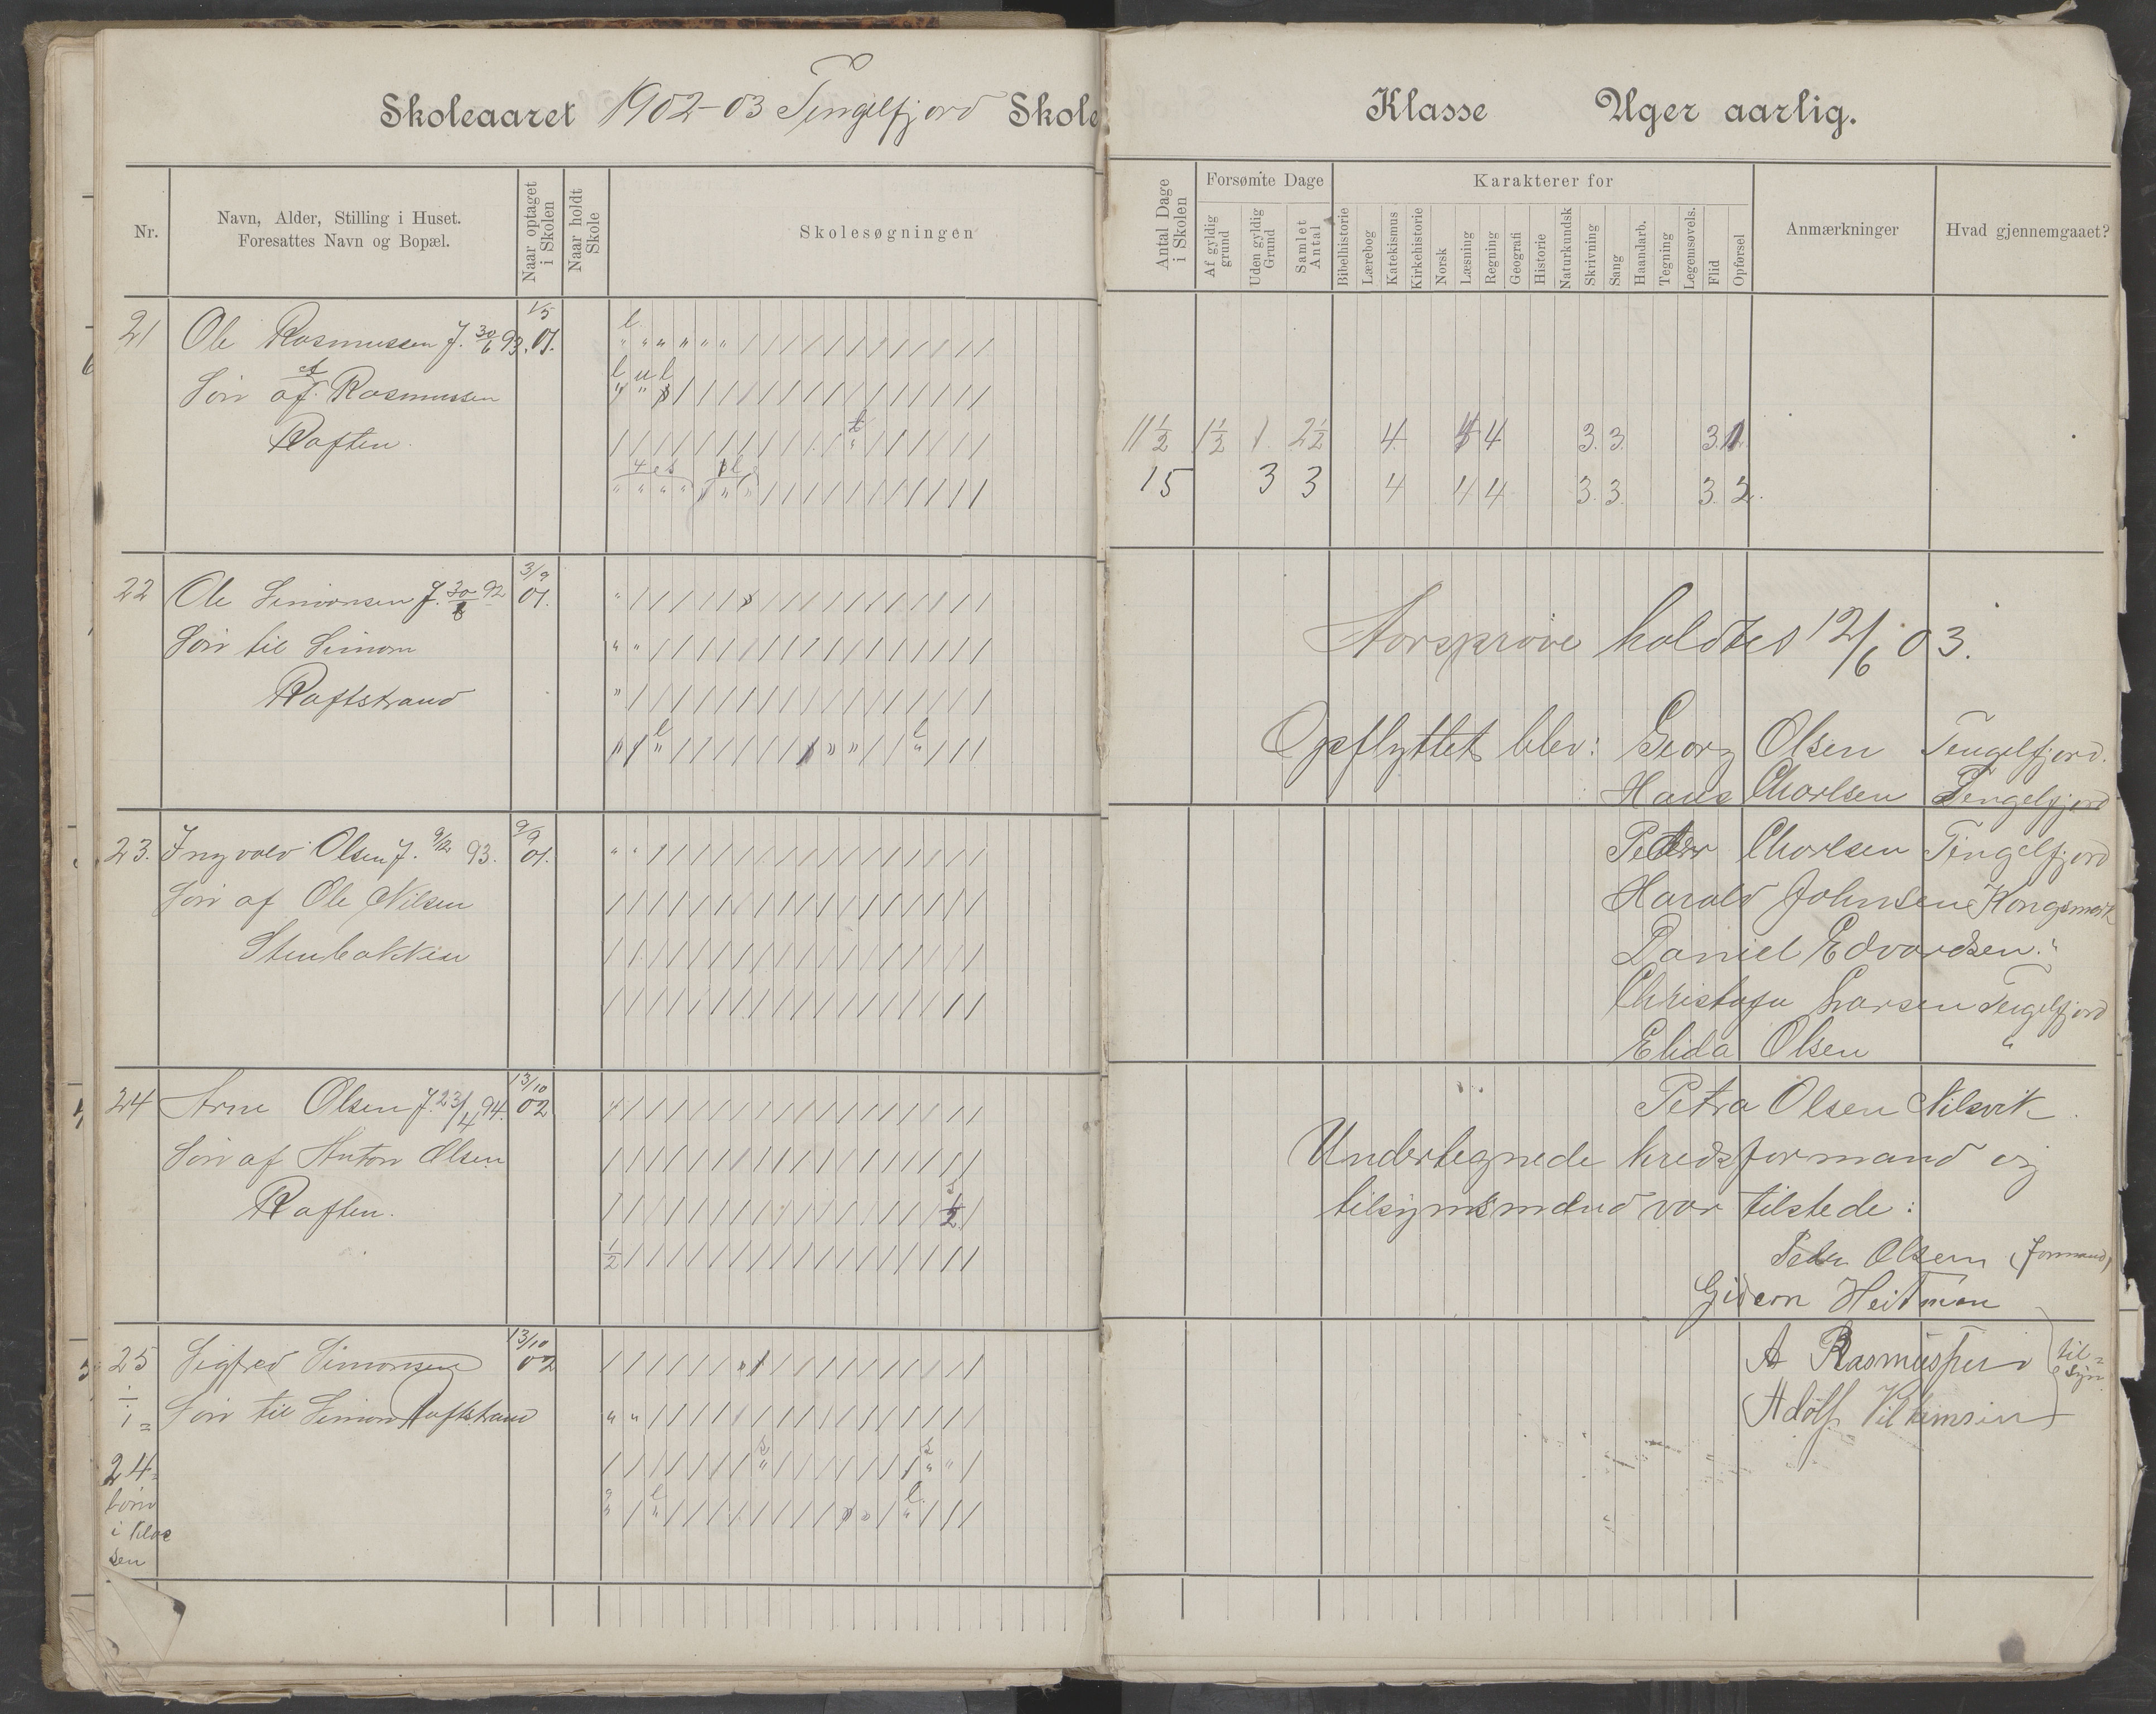 Skoleaaret 1902-03 Tengelfjord Skole
Klasse Uger aarlig.
Nr.
Navn, Alder, Stilling i Huset.
Foresattes Navn og Bopæl.
Naar optaget
i Skolen
Naar holdt
Skole
Skolesøgningen
Antal Dage
i Skolen
Forsømte Dage
Af gyldig
grund
Uden gyldig
Grund
Samlet
Antal
Karakterer for
Bibelhistorie
Lærebog
Katekismus
Kirkehistorie
Norsk
Læsning
Regning
Geografi
Historie
Naturkundsk
Skrivning
Sang
Haandarb.
Tegning
Legemsøvels.
Flid
Opførsel
Anmærkninger
Hvad gjennemgaaet?
21 Ole Rasmussen f. 30/6 93. 1/5 01.
Søn af Rasmussen
Raften.
11 1/2 1 1/2 1 2 1/2 4 4 4 3. 3. 3. 1
15 3 3 4 4 4 3. 3. 3. 2.
22 Ole Simonsen f. 30 92 3/9 01.
Søn til Simon
Raftstrand
23. Ingvald Olsen f. 9/12 93. 9/9 01.
Søn af Ole Nilsen
Stenbakken
24 Arne Olsen f. 23/4 94. 13/10 02
Søn af Anton Olsen
Raften.
25 Sigfred Simonsen 13/10 02
÷
1 = Søn til Simon Raftstrand
24
børn
i klas
sen
Aarsprøve holdtes 12/6 03.
Opflyttet blev: Georg Olsen Tengelfjord.
Hans Charlsen Tengelfjord
Peder Charlsen Tengelfjord
Harald Johnsen Kongsmark
Daniel Edvardsen "
Christofa Larsen Tengelfjord
Elida Olsen "
Petra Olsen Nilsvik
Undertegnede kredsformand og
tilsynsmænd var tilstede:
Peder Olsen (formand)
Gideon Heitman
A Rasmussen
til=
syn
Adolf Vilhemsen